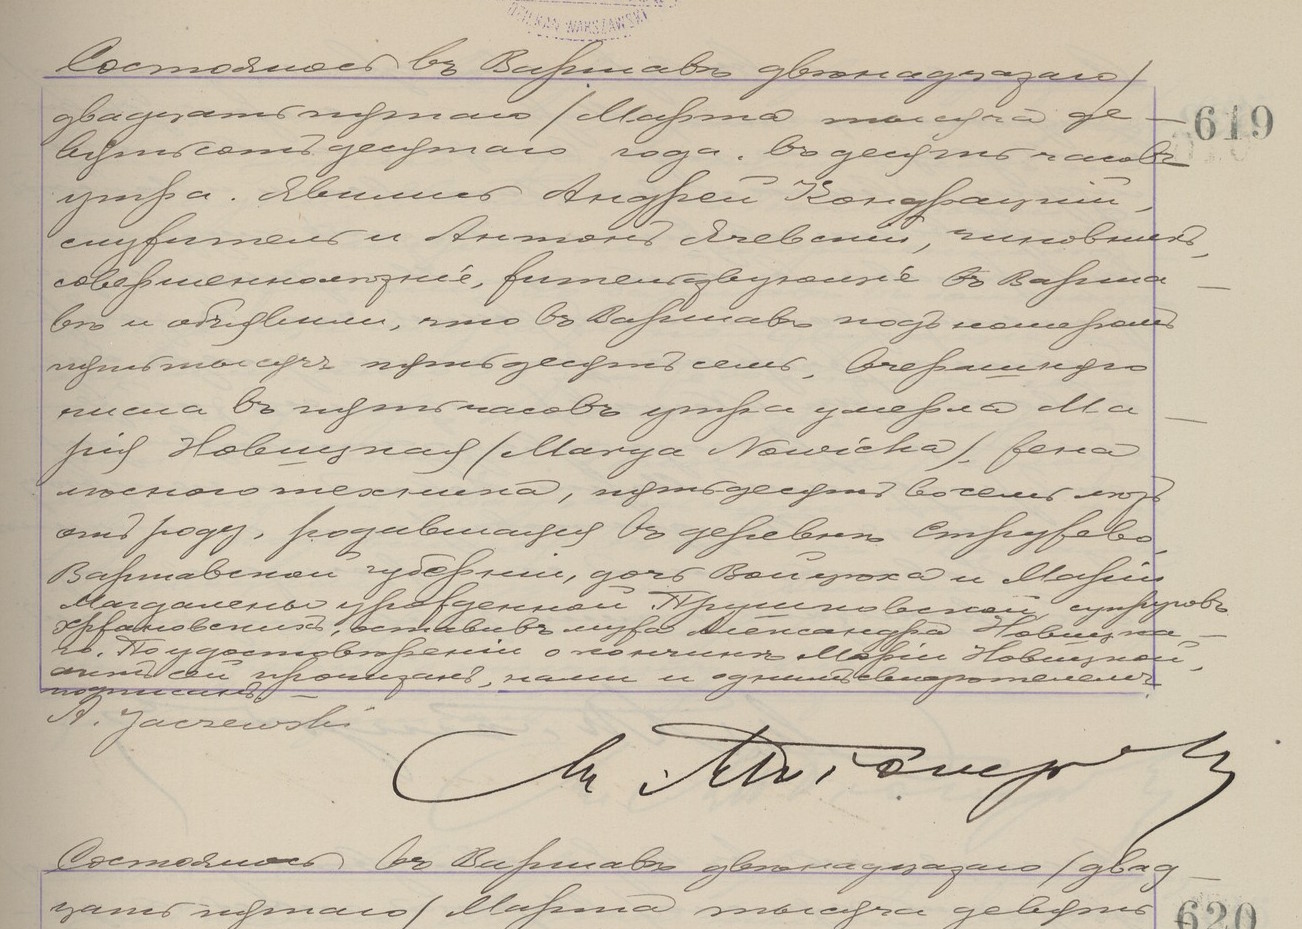 DZIEKAN WARSZAWSKI
Состоялось въ Варшавѣ двѣнадцатаго /
двадцать пятаго / Марта тысяча де-
вятьсотъ десятаго года. въ десять часовъ
утра. Явились Андрей Кондрацкій,
служитель и Антонъ Ячевскій, чиновникъ,
совершеннолѣтніе, жительствующіе въ Варша-
вѣ и объявили, что въ Варшавѣ подъ номеромъ
пять тысячъ пятьдесятъ семь, вчерашняго
числа въ пять часовъ утра умерла Ма-
рія Новицкая /Marya Nowicka/, жена
лѣсного техника, пятьдесятъ восемь лѣтъ
отъ роду, родившаяся въ деревнѣ Стружево,
Варшавской губерніи, дочь Войцѣха и Маріи
Магдалены урожденной Прушковской, супруговъ
Хржановскихъ, оставивъ мужа Александра Новицка-
го. По удостовѣреніи о кончинѣ Маріи Новицкой,
актъ сей прочитанъ, нами и однимъ свидѣтелемъ
подписанъ.
A. Jaczewski
619
Состоялось въ Варшавѣ двѣнадцатаго / двад-
цать пятаго / Марта тысяча девять
620